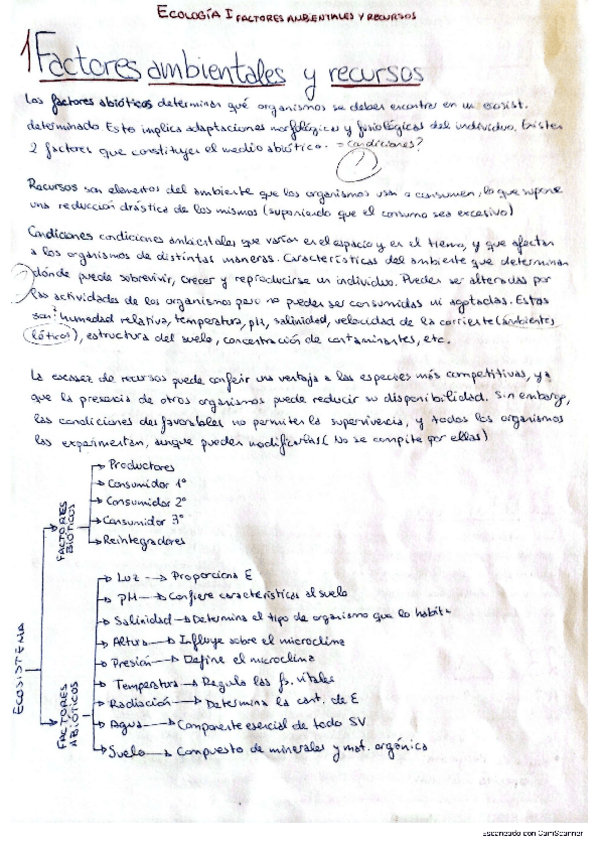 ECOLOGÍA I FACTORES AMBIENTALES Y RECURSOS
1 Factores ambientales y recursos
Los factores abióticos determinan qué organismos se deben encontrar en un ecosist.
determinado Esto implica adaptaciones morfológicas y fisiológicas del individuo. Existen
2 factores que constituyen el medio abiótico. = condiciones?
Recursos son elementos del ambiente que los organismos usan o consumen, lo que supone
una reducción drástica de los mismos (suponiendo que el consumo sea excesivo)
Condiciones condiciones ambientales que varían en el espacio y en el tiempo, y que afectan
a los organismos de distintas maneras. Características del ambiente que determinan
dónde puede sobrevivir, crecer y reproducirse un individuo. Pueden ser alteradas por
las actividades de los organismos pero no pueden ser consumidas ni agotadas. Estas
son: humedad relativa, temperatura, pH, salinidad, velocidad de la corriente (ambientes
lóticos), estructura del suelo, concentración de contaminantes, etc.
La escasez de recursos puede conferir una ventaja a las especies más competitivas, ya
que la presencia de otros organismos puede reducir su disponibilidad. Sin embargo,
las condiciones desfavorables no permiten la supervivencia, y todos los organismos
las experimentan, aunque pueden modificarlas (No se compite por ellas)
ECOSISTEMA
FACTORES BIÓTICOS
→ Productores
→ Consumidor 1º
→ Consumidor 2º
→ Consumidor 3º
→ Reintegradores
FACTORES ABIÓTICOS
→ Luz → Proporciona E
→ PH → Confiere características al suelo
→ Salinidad → Determina el tipo de organismo que lo habita
→ Altura → Influye sobre el microclima
→ Presión → Define el microclima
→ Temperatura → Regula las fs. vitales
→ Radiación → Determina la cant. de E
→ Agua → Componente esencial de todo SV
→ Suelo → Compuesto de minerales y mat. orgánica
Escaneado con CamScanner